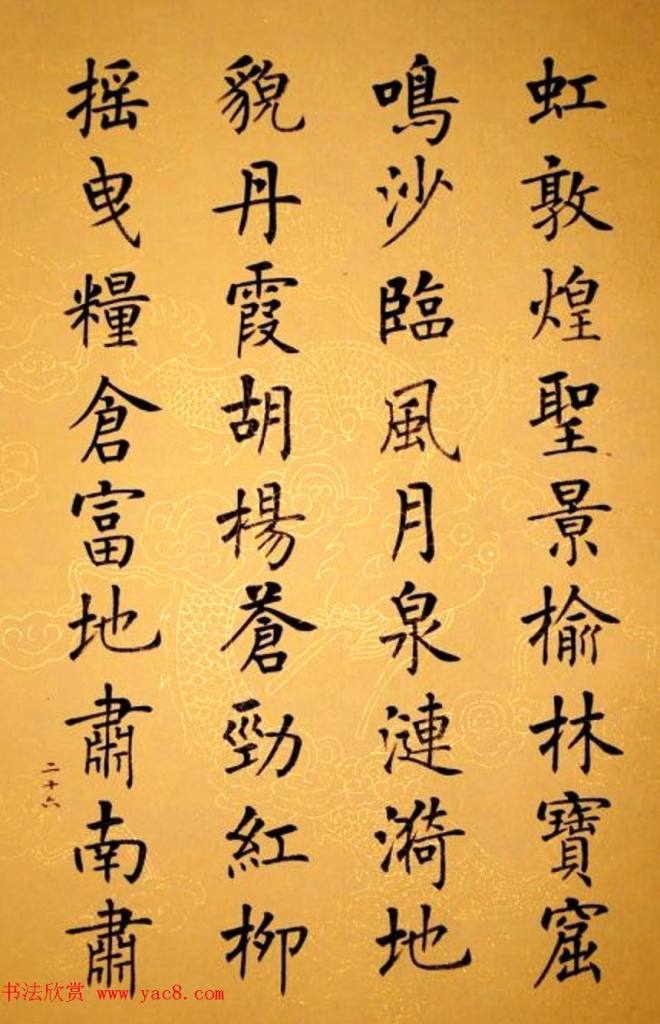 虹敦煌聖景榆林寶窟
鳴沙臨風月泉漣漪地
貌丹霞胡楊蒼勁紅柳
摇曳糧倉富地肅南肅
二十六
书法欣赏 www.yac8.com